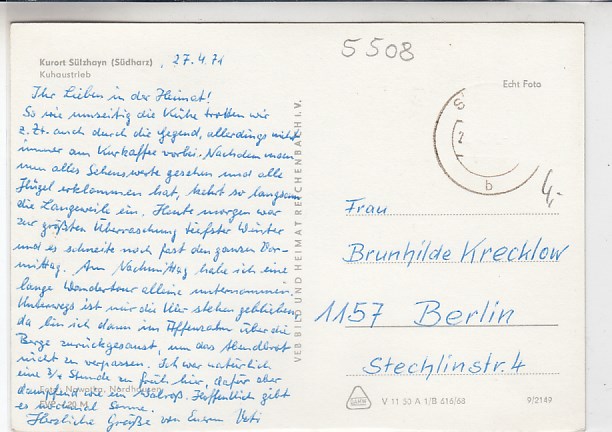 5508
Kurort Sülzhayn (Südharz) , 27.4.71
Kuhaustrieb
Echt Foto
Ihr Lieben in der Heimat!
So wie umseitig die Kühe trotten wir
z.Zt. auch durch die Gegend, allerdings nicht
immer am Kurkaffee vorbei. Nachdem man
nun alles Sehenswerte gesehen und alle
Hügel erklommen hat, kehrt so langsam
die Langeweile ein. Heute morgen war
zur größten Überraschung tiefster Winter
und es schneite noch fest den ganzen Vor-
mittag. Am Nachmittag habe ich eine
lange Wandertour alleine unternommen.
Unterwegs ist mir die Uhr stehen geblieben,
da bin ich dann im Affenzahn über die
Berge zurückgesaust, um das Abendbrot
nicht zu verpassen. Ich war natürlich
eine 3/4 Stunde zu früh hier, dafür aber
dampfend wie ein Walroß. Hoffentlich gibt
es nochmal Sonne.
Herzliche Grüße von Eurem
Foto: Nowotka, Nordhausen
VEB BILD UND HEIMAT REICHENBACH I. V.
b
4,-
Frau
Brunhilde Krecklow
1157 Berlin
Stechlinstr. 4
V 11 50 A 1/B 616/68
9/2149